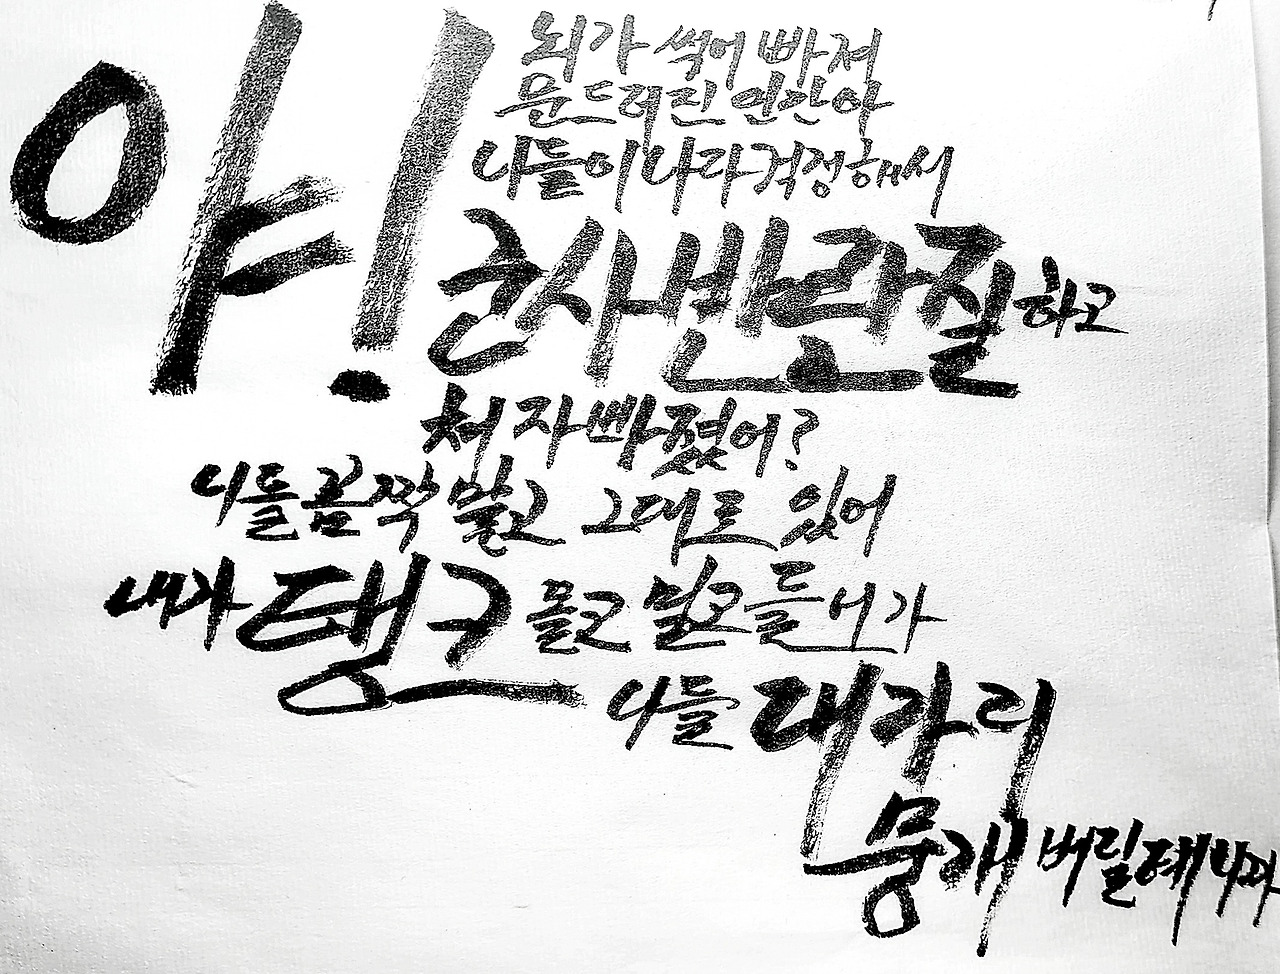 야!
뇌가 썩어 빠져
문드러진 인간아
니들이 나라 걱정해서
군사반란질 하고
처 자빠졌어?
니들 꼼짝 말고 그대로 있어
내가 탱크 몰고 밀고 들어가
니들 대가리
뭉개 버릴테니까